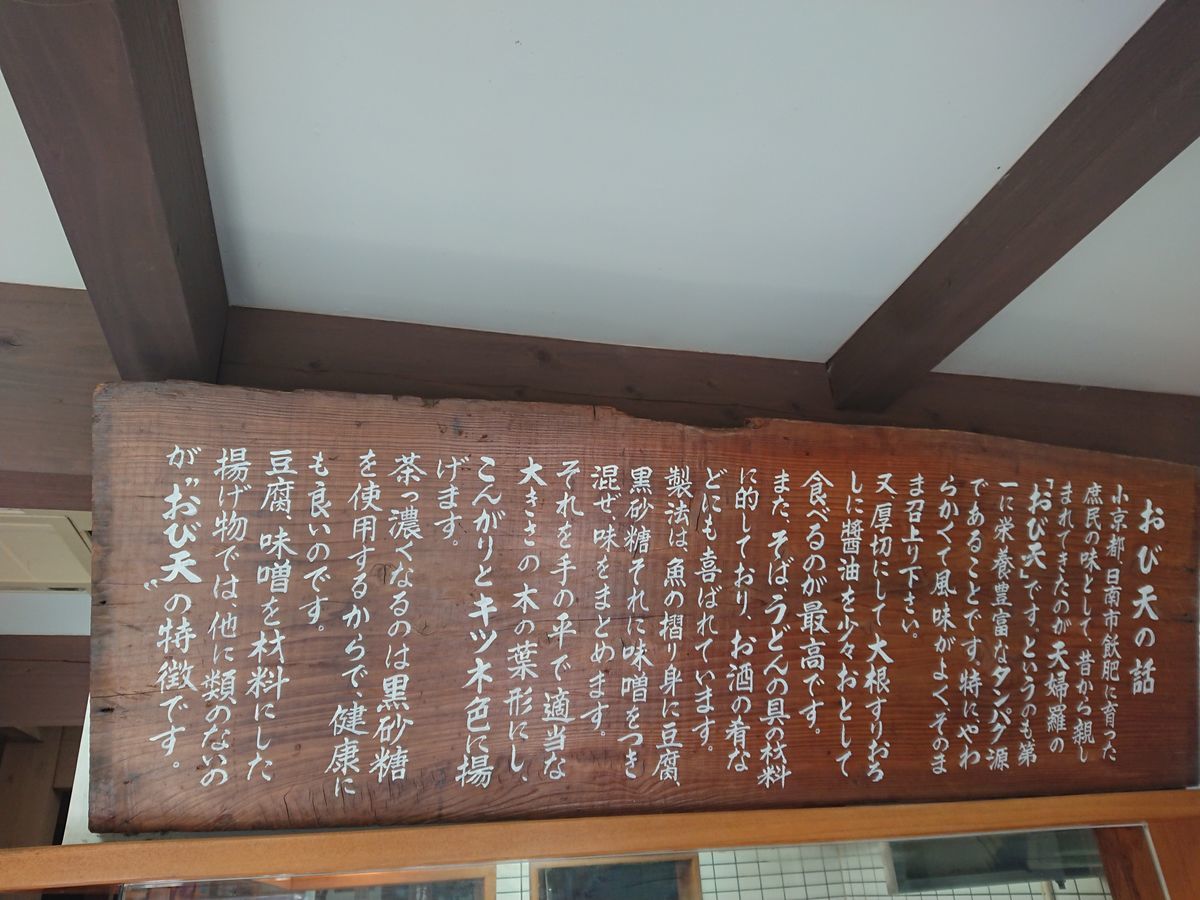 おび天の話
小京都日南市飫肥に育った
庶民の味として、昔から親し
まれてきたのが天婦羅の
「おび天」です。というのも第
一に栄養豊富なタンパク源
であることです、特にやわ
らかくて風味がよくそのま
ま召上り下さい。
又厚切にして大根すりおろ
しに醬油を少々おとして
食べるのが最高です。
また、そばうどんの具の材料
に的しており、お酒の肴な
どにも喜ばれています。
製法は、魚の摺り身に豆腐、
黒砂糖それに味噌をつき
混ぜ味をまとめます。
それを手の平で適当な
大きさの木の葉形にし、
こんがりとキツ木色に揚
げます。
茶っ濃くなるのは黒砂糖
を使用するからで、健康に
も良いのです。
豆腐、味噌を材料にした
揚げ物では、他に類のないの
が〝おび天〟の特徴です。